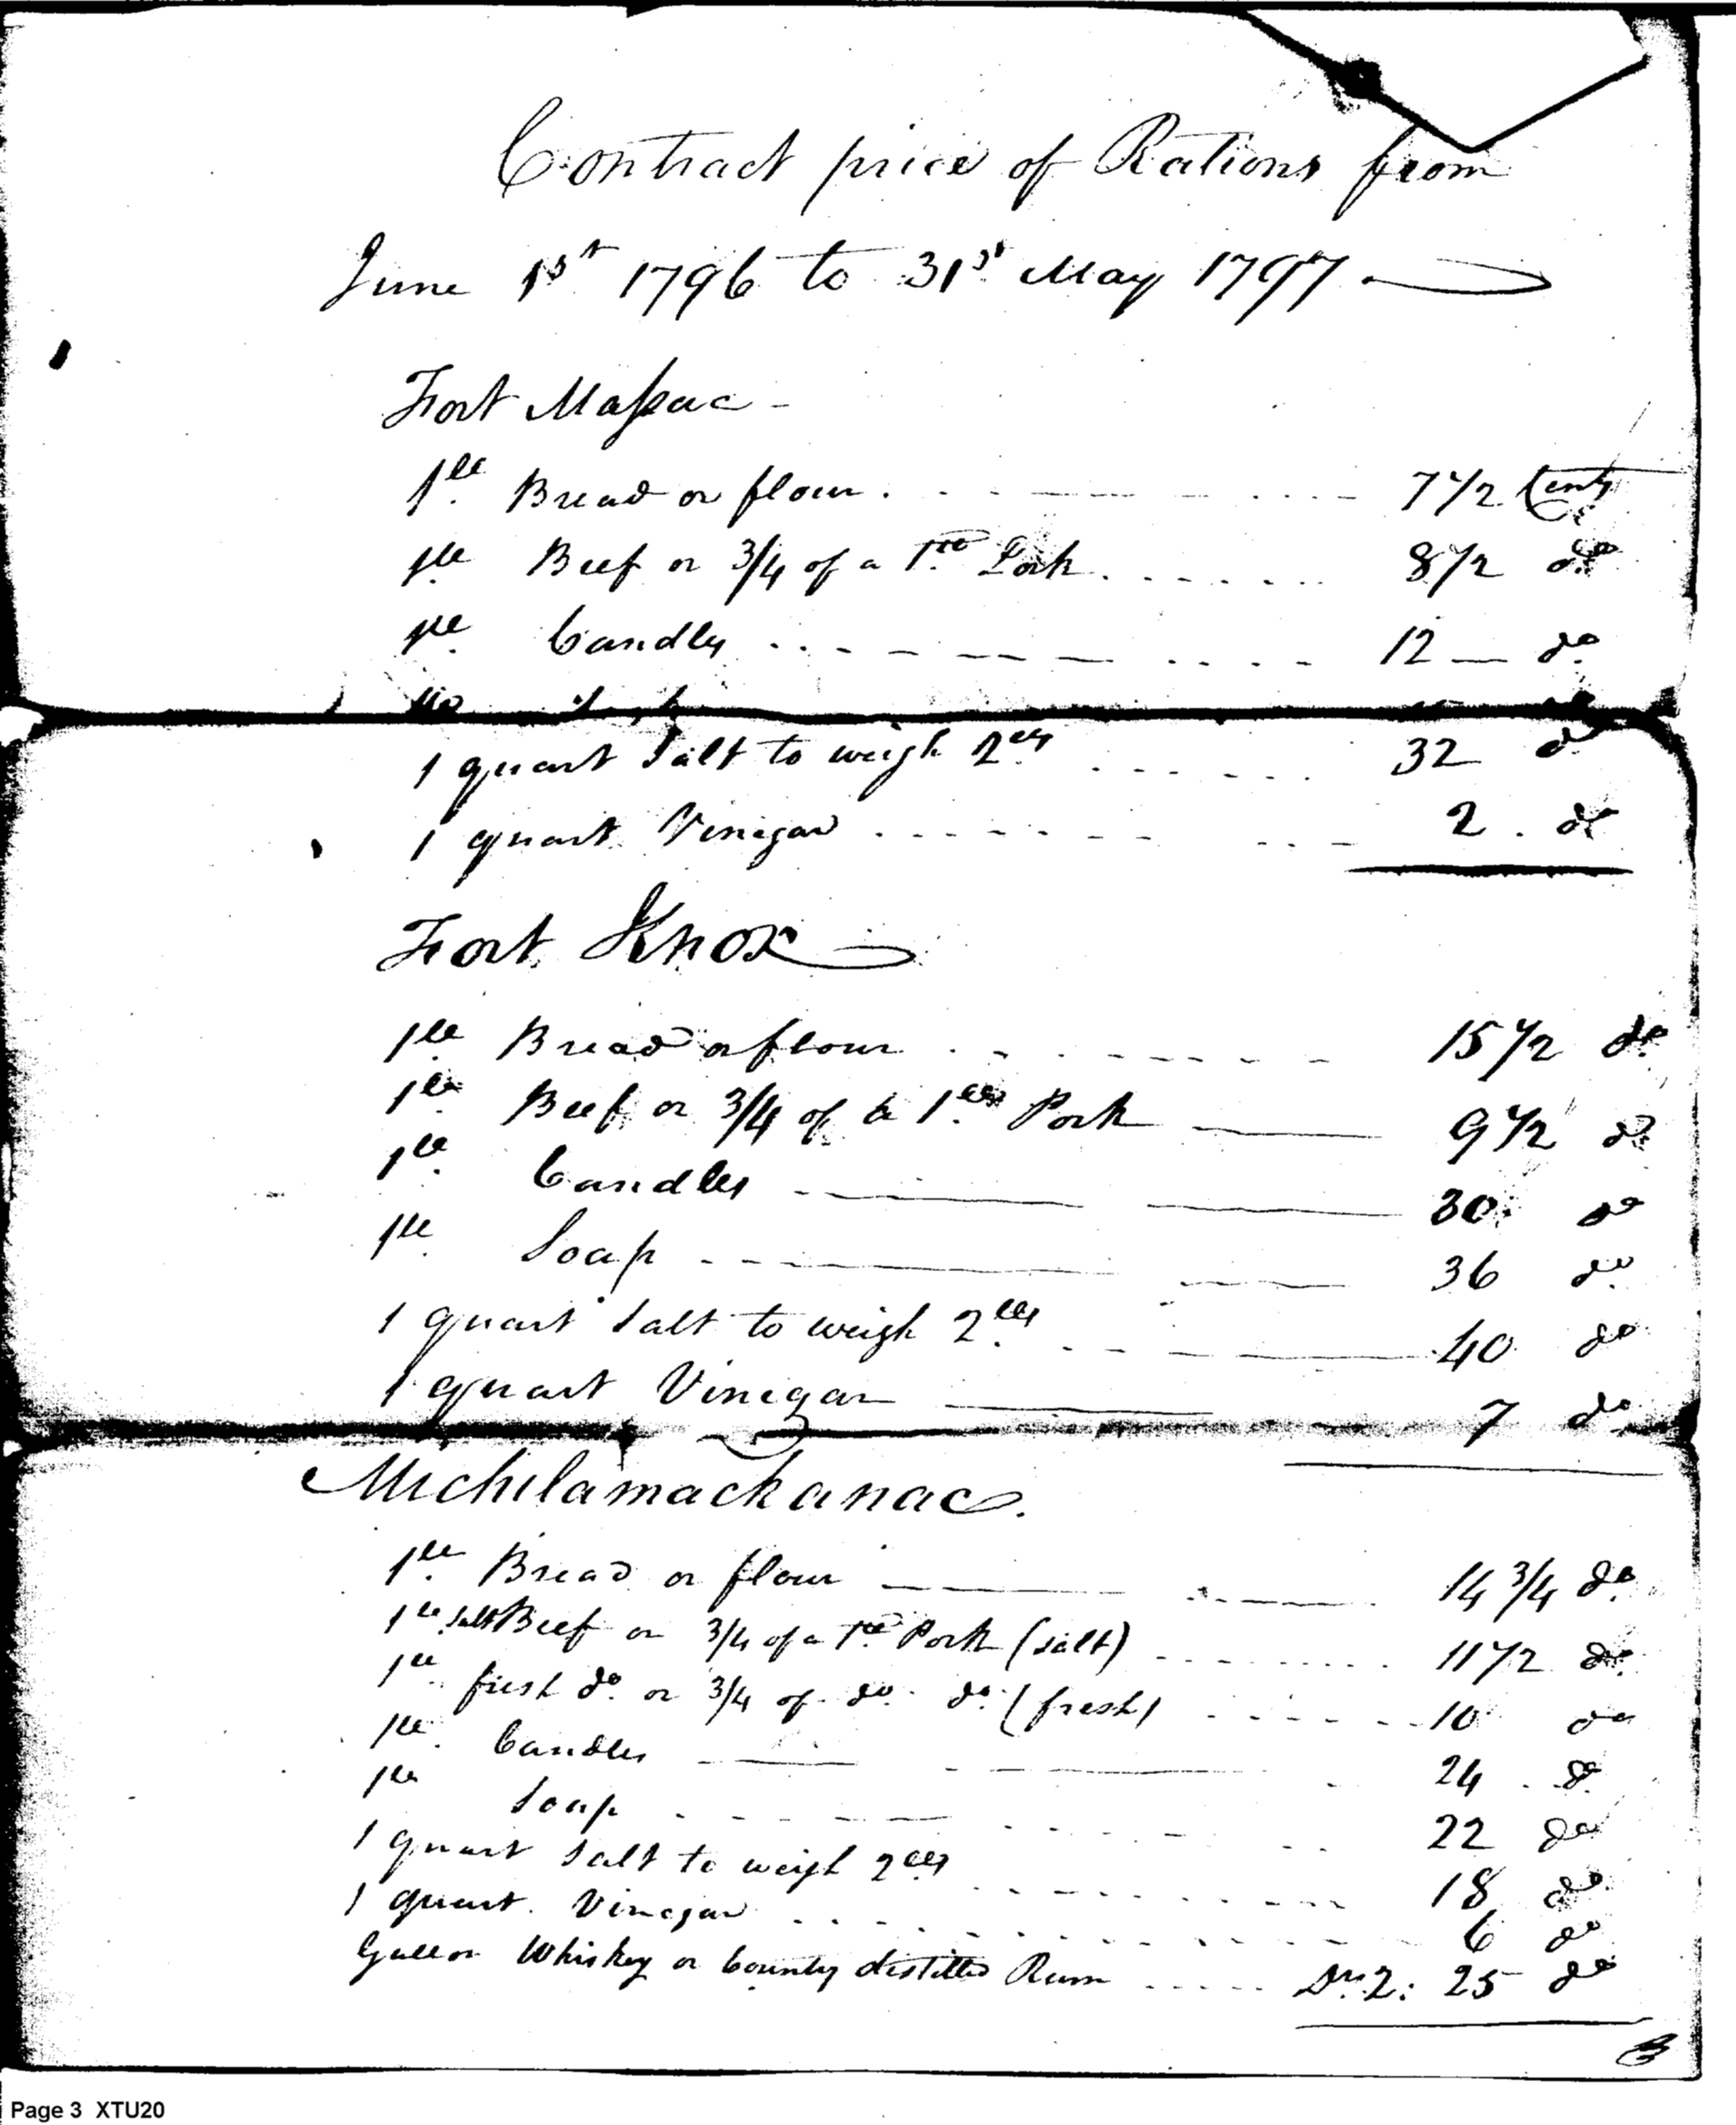 Contract price of Rations from
June 1st 1796 to 31st May 1797
Fort Massac -
1 lb Bread or flour . . . . 7 1/2 Cents
1 lb Beef or 3/4 of a 1 lb Pork . . . . . . 8 1/2 do
1 lb Candles . . . . 12 — do
1 quart Salt to weigh 2 lbs . . . . . . 32 do
1 quart Vinegar . . . . 2 . do
Fort Knox
1 lb Bread or flour . . . . 15 1/2 do
1 lb Beef or 3/4 of a 1 lb Pork —— 9 1/2 do
1 lb Candles —— 30 do
1 lb Soap —— 36 do
1 quart Salt to weigh 2 lbs —— 40 do
1 quart Vinegar —— 7 do
Michilamackanac.
1 lb Bread or flour —— 14 3/4 do
1 lb Salt Beef or 3/4 of a 1 lb Pork (salt) . . . . 11 1/2 do
1 lb fresh do or 3/4 of do do (fresh) . . . . 10 do
1 lb Candles —— 24 do
1 lb Soap . . . . 22 do
1 quart Salt to weigh 2 lbs . . . . 18 do
1 quart Vinegar . . . . 6 do
Gallon Whiskey or County distilled Rum . . . . . Drs 2: 25 do
Page 3 XTU20